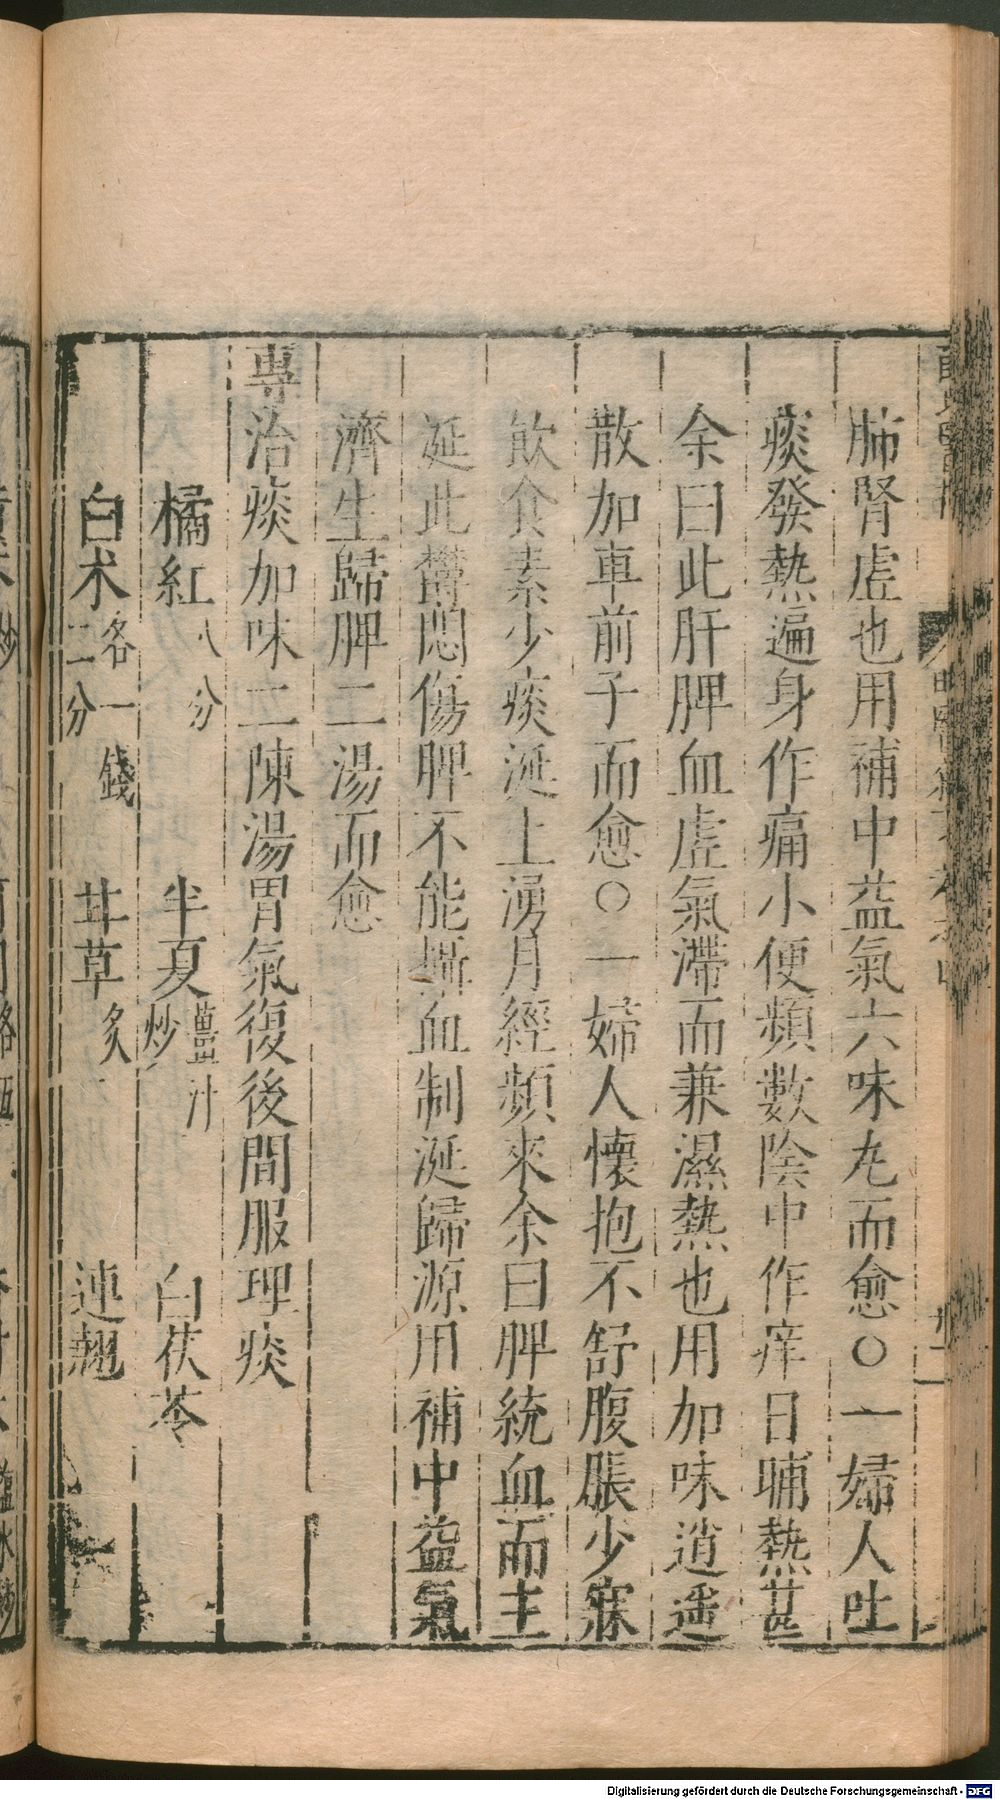 肺腎虛也用補中益氣六味丸而愈○一婦人吐
痰發熱遍身作痛小便頻數陰中作痒日晡熱甚
余曰此肝脾血虛氣滯而兼濕熱也用加味逍遥
散加車前子而愈○一婦人懷抱不舒腹脹少寐
飲食素少痰涎上湧月經頻來余曰脾統血而主
涎此鬱悶傷脾不能攝血制涎歸源用補中益氣
濟生歸脾二湯而愈
專治痰加味二陳湯胃氣復後間服理痰
橘紅八分 半夏薑汁炒 白茯苓
白朮各一錢二分 甘草炙 連翹
Digitalisierung gefördert durch die Deutsche Forschungsgemeinschaft - DFG